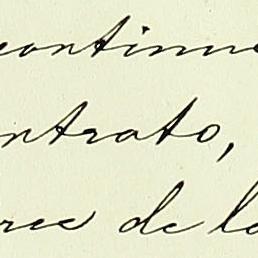 continu
ontrato,
ree de lo